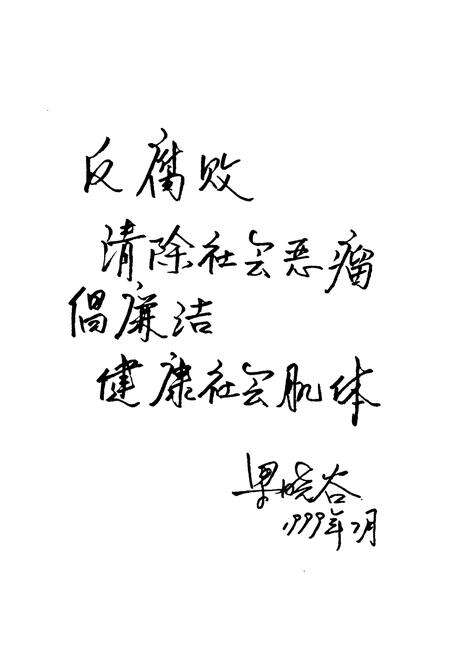 反腐败
清除社会恶瘤
倡廉洁
健康社会肌体
晓谷
1999年7月